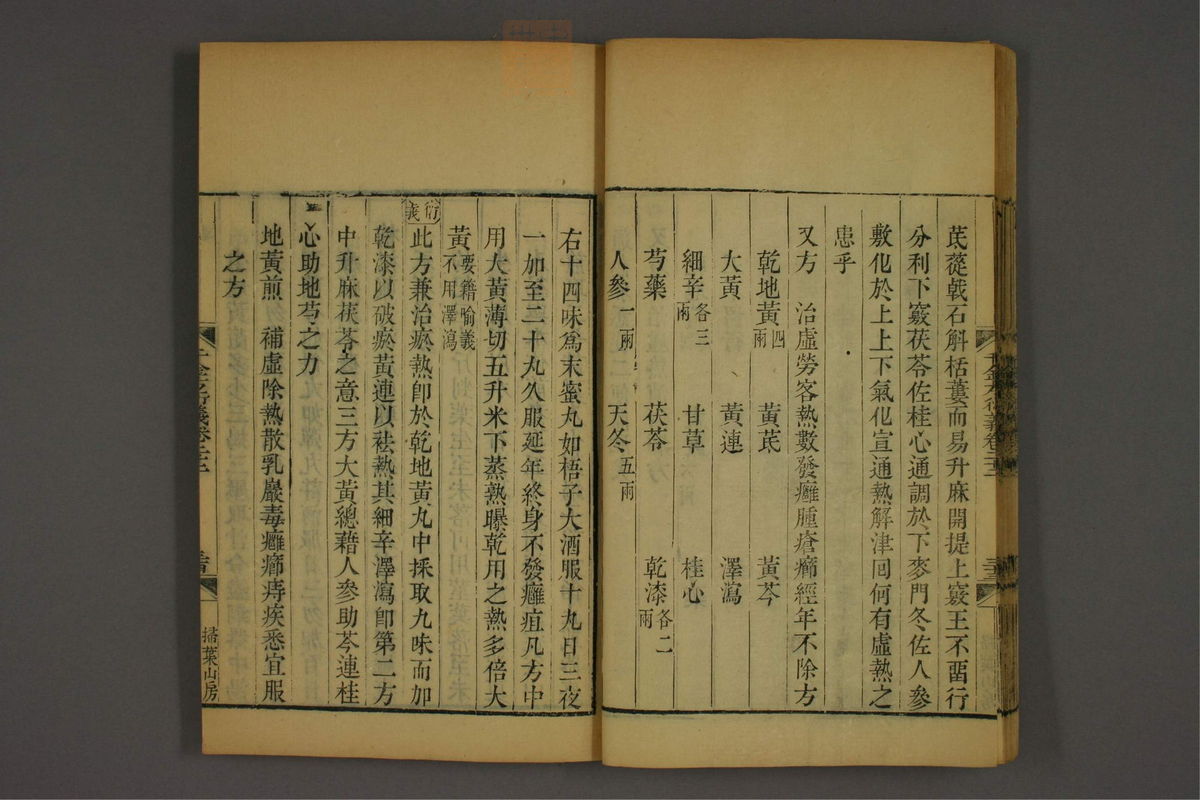 芪蓯戟石斛栝蔞而易升麻開提上竅王不畱行
分利下竅茯苓佐桂心通調於下麥門冬佐人參
敷化於上上下氣化宣通熱解津回何有虛熱之
患乎
又方　治虛勞客熱數發癰腫瘡癤經年不除方
乾地黃四兩　黃芪　黃芩
大黃　黃連　澤瀉
細辛各三兩　甘草　桂心
芍藥　茯苓　乾漆各二兩
人參一兩　天冬五兩
右十四味爲末蜜丸如梧子大酒服十丸日三夜
一加至二十丸久服延年終身不發癰疽凡方中
用大黃薄切五升米下蒸熟曝乾用之熱多倍大
黃要籍喻義不用澤瀉
衍義
此方兼治瘀熱卽於乾地黃丸中採取九味而加
乾漆以破瘀黃連以袪熱其細辛澤瀉卽第二方
中升麻茯苓之意三方大黃總藉人參助芩連桂
心助地芍之力
地黃煎　補虛除熱散乳巖毒癰癤痔疾悉宜服
之方
千金方衍義卷二十二
掃葉山房